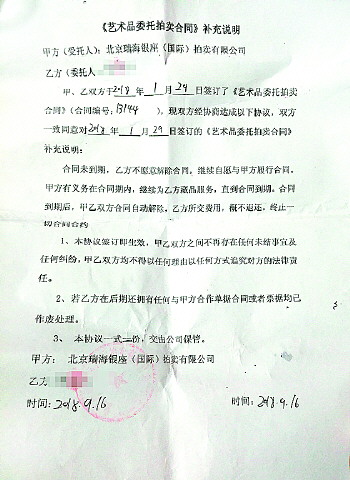 《艺术品委托拍卖合同》补充说明
甲方（受托人）：北京瑞海银座（国际）拍卖有限公司
乙方（委托人
甲、乙双方于2018年1月29日签订了《艺术品委托拍卖
合同》（合同编号：13144），现双方经协商达成以下协议，双方
一致同意对2018年1月29日签订的《艺术品委托拍卖合同》
补充说明：
合同未到期，乙方不愿意解除合同，继续自愿与甲方履行合同，
甲方有义务在合同期内，继续为乙方藏品服务，直到合同到期。合同
到期后，甲乙双方合同自动解除，乙方所交费用，概不退还，终止一
切合同合约
1、本协议签订即生效，甲乙双方之间不再存在任何未结事宜及
任何纠纷，甲乙双方均不得以任何理由以任何方式追究对方的法律责
任。
2、若乙方在后期还拥有任何与甲方合作单据合同或者票据均已
作废处理。
3、本协议一式二份，交由公司保管。
甲方：北京瑞海银座（国际）拍卖有限公司
乙方
时间：2018.9.16 时间：2018.9.16